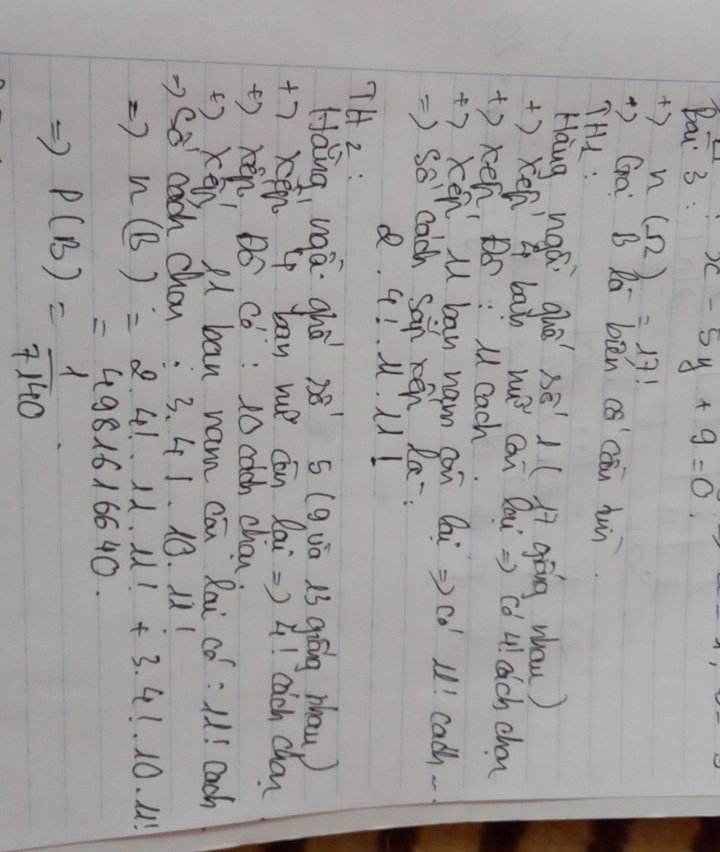 x - 5y + 9 = 0.
bài 3:
+) n(Ω) = 17!
+) Gọi B là biến cố cần tìm.
TH1:
Hằng ngồi ghế số 1 (17 giống nhau)
+) xếp 4 bạn nữ còn lại => có 4! cách chọn
+) xếp Đô : 11 cách.
+) xếp 11 bạn nam còn lại => có 11! cách
=> số cách sắp xếp là:
2.4!.11.11!
TH2:
Hằng ngồi ghế số 5 (9 và 13 giống nhau)
+) xếp 4 bạn nữ còn lại => 4! cách chọn
+) xếp Đô có: 10 cách chọn.
+) xếp 11 bạn nam còn lại có: 11! cách
=> Số cách chọn: 3.4!.10.11!
=> n(B) = 2.4!.11.11! + 3.4!.10.11!
= 4981616640.
=> P(B) = 1/7140.